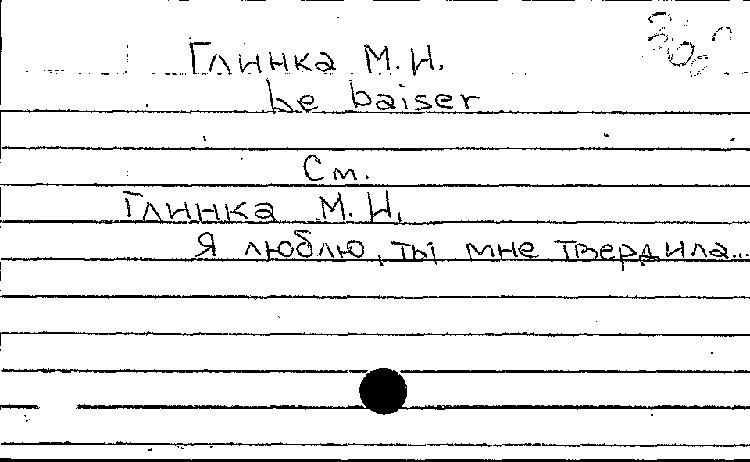 Глинка М.И.
Le baiser
См.
Глинка М.И.
Я люблю, ты мне твердила...